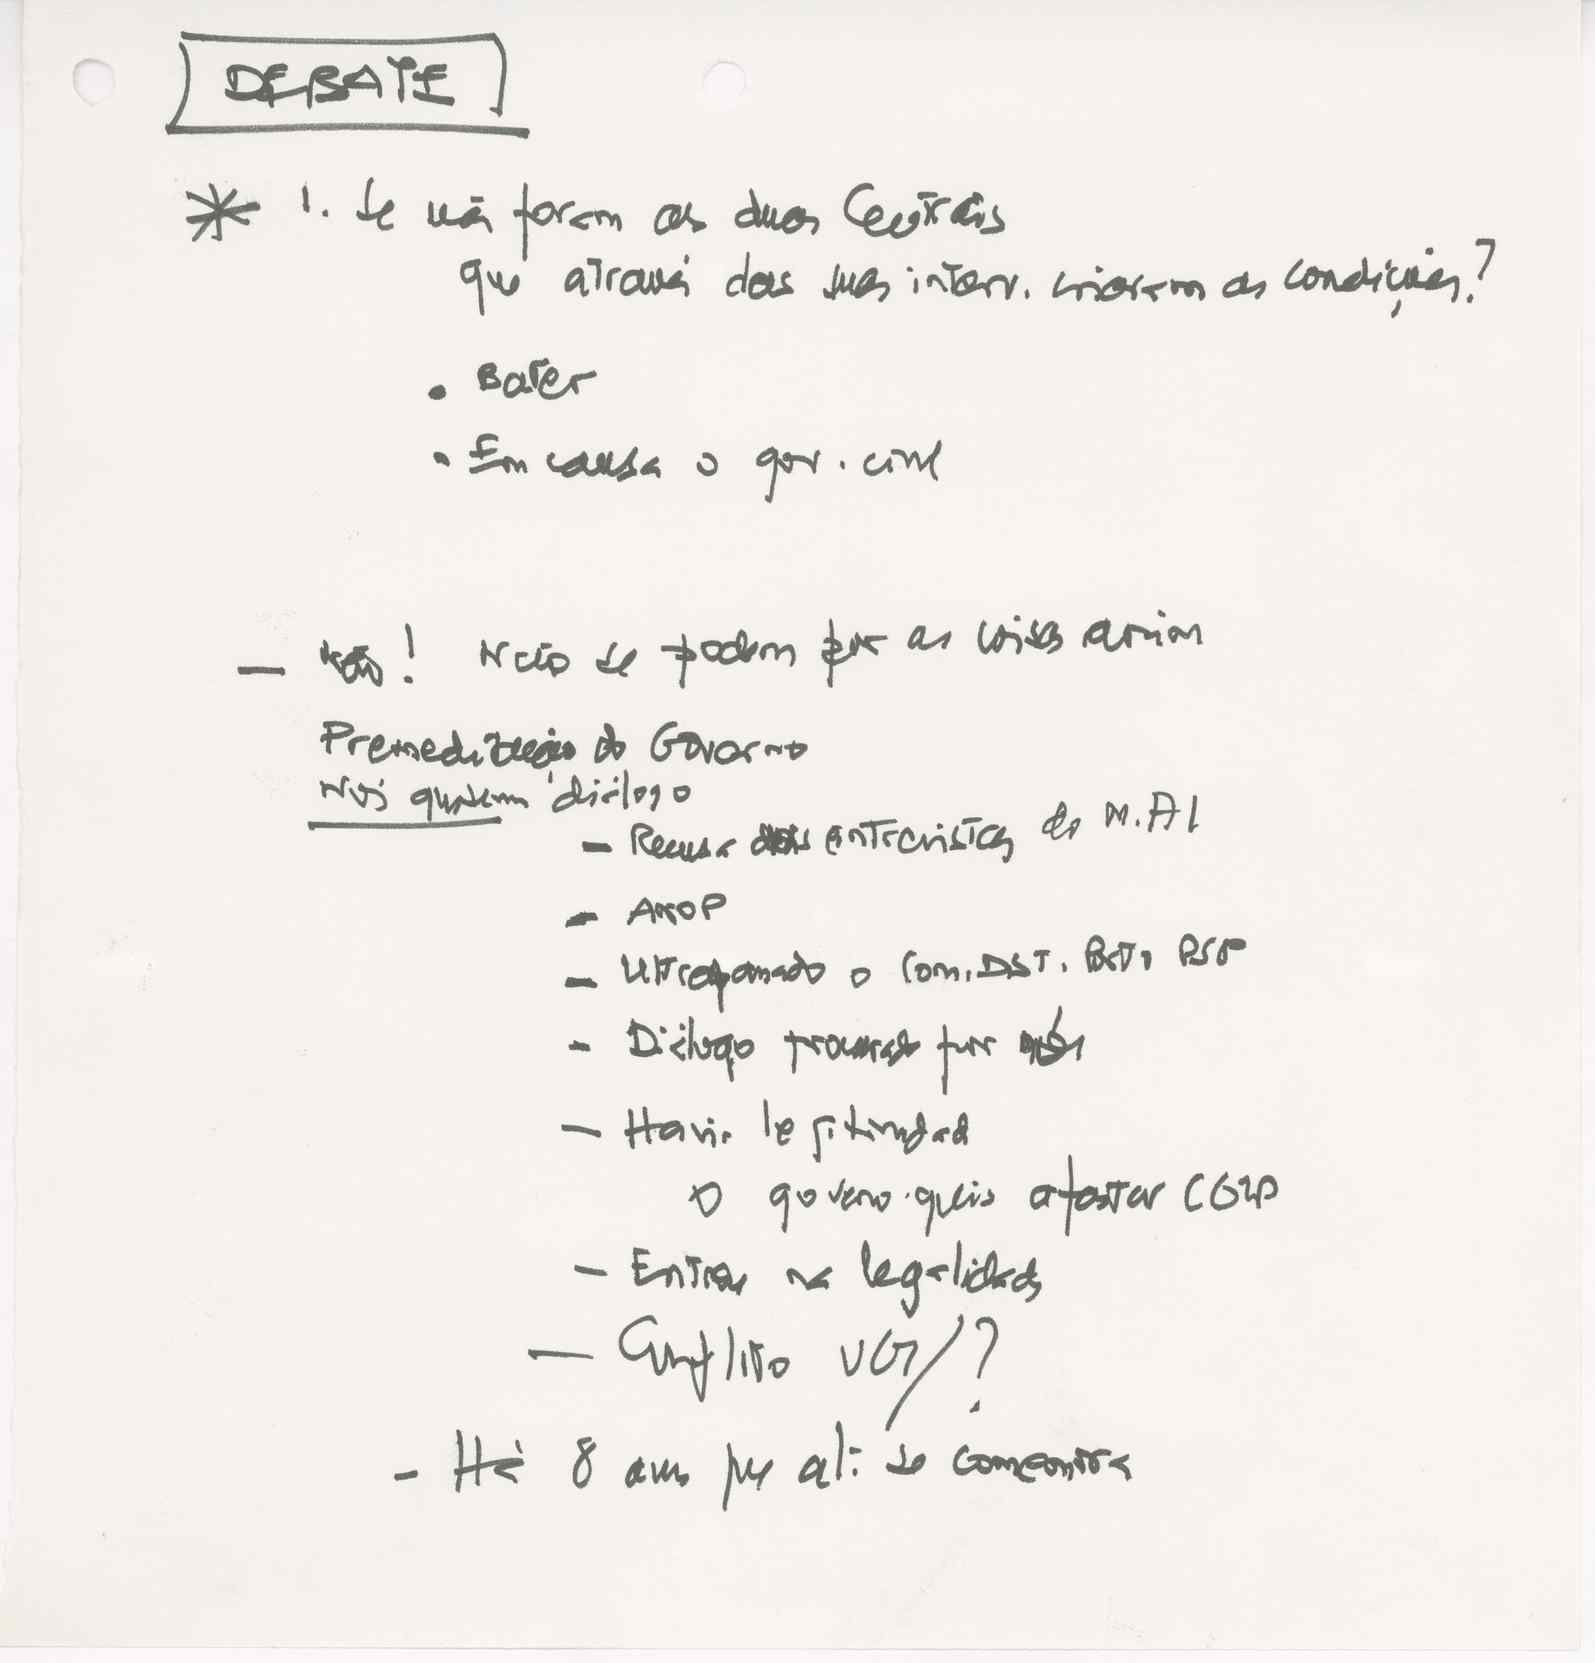 DEBATE
* 1. Se não foram as duas Centrais
que através das suas interv. criaram as condições?
• Bater
• Em causa o gov. civil
— Não! Não se podem pôr as coisas assim
Premeditação do Governo
Nós quisemos diálogo
- Recusa das entrevistas do M.AI
- ANOP
- Ultrapassado o Com. DIST. PSP
- Diálogo procurado por nós
- Havia legitimidade
O governo quis afastar CGTP
- Entrou na legalidade
— Conflito UGT/?
- Há 8 anos que ali se comemora